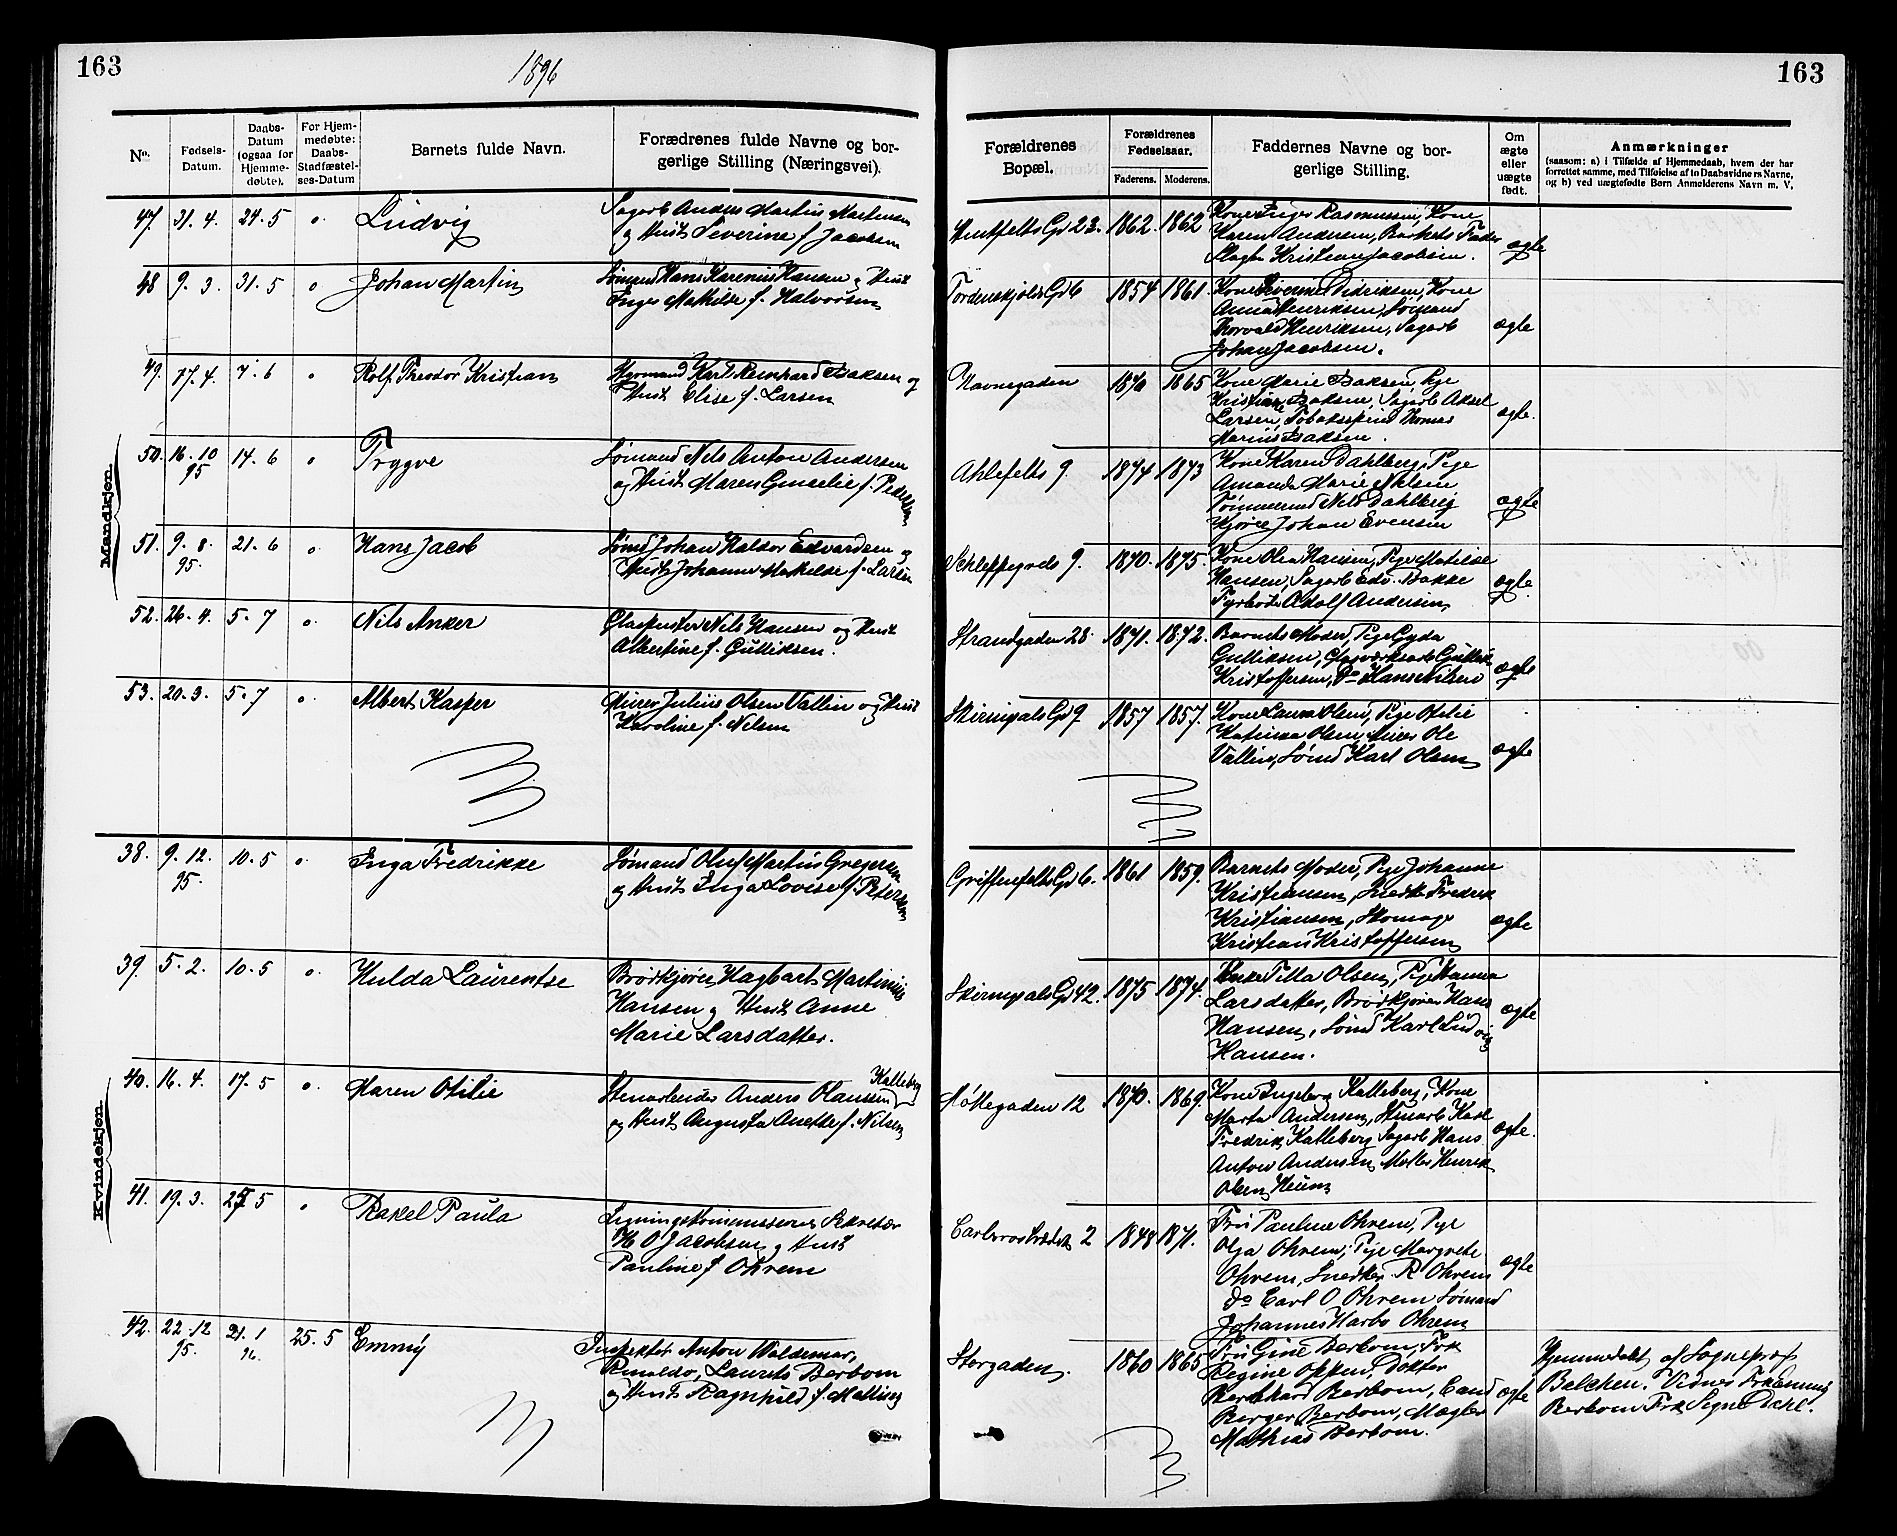 163
1896
163
No.
Fødsels-Datum.
Daabs-Datum (ogsaa for Hjemme-døbte).
For Hjem-medøbte: Daabs-Stadfæstel-ses-Datum
Barnets fulde Navn.
Forædrenes fulde Navne og bor-gerlige Stilling (Næringsvei).
Forældrenes Bopæl.
Forældrenes Fødselsaar.
Faderens. Moderens.
Faddernes Navne og bor-gerlige Stilling.
Om ægte eller uægte født.
Anmærkninger
(saasom: a) i Tilfælde af Hjemmedaab, hvem der har
forrettet samme, med Tilføielse af to Daabsvidners Navne,
og b) ved uægtefødte Børn Anmelderens Navn m. V.
Mandkjøn
47. 21. 4. 24. 5 o. Ludvig
Sagarb Anders Martin Martinsen
og Hust Severine f. Jacobsen
Huitfelts Gd 23. 1862. 1862
Kone Inger Rasmussen, Kone
Karen Andersen, Barnets Fader
Slagter Kristian Jacobsen.
ægte
48 9. 3. 31. 5 o. Johan Martin
Sømand Hans Karenius Hansen og Hust
Inger Mathilde f. Halvorsen
Tordenskjolds Gd 6 1854 1861.
Kone Severine Didriksen, Kone
Anna Henriksen, Sømand
Thorvald Henriksen, Sagarb
Johan Jacobsen.
ægte
49. 17. 4. 7. 6 o Rolf Theodor Kristian
Karl Reinhard Isaksen og
Hust Elise f. Larsen
Havnegaden 1870 1865
Kone Marie Isaksen, Pige
Kristiane Isaksen, Sagarb Aksel
Larsen, Thomas
Marius Isaksen.
ægte.
50. 16. 10 95 14. 6 o Trygve
Sømand Nils Anton Andersen
og Hust Maren f. Pedersen
Ahlefelts 9. 1874 1873
Kone Karen Dahlberg, Pige
Amanda Marie Nilsen
Tømmermd Nils Dahlberg
Kjører Johan Evensen
ægte
51. 9. 8. 95. 21. 6 o. Hans Jacob
Sømd Johan Haldor Edvardsen og
Hust Johanne Mathilde f. Larsen
Schleppegrels 9. 1870. 1875.
Kone Olea Hansen, Pige Matilde
Hansen, Sagarb Edv. Bakke
Fyrbøder Adolf Andersen
ægte.
52. 26. 4. 5. 7 o. Nils Anker
Glaspuster Nils Hansen og Hust
Albertine f. Gulliksen.
Strandgaden 28. 1871. 1872.
Barnets Moder, Pige Gyda
Gulliksen, Glasværksarb Gullik
Kristoffersen, Do Hans Nilsen
ægte
53. 20. 3. 5. 7 o. Albert Kasper
Murer Julius Olsen Vallin og Hust
Karoline f. Nilsen
Skiringsals Gd 9 1857 1857.
Kone Laura Olsen, Pige Otilie
Katinka Olsen, Murer Ole
Vallin, Sømd Karl Olsen
ægte
Kvindekjøn
38. 9. 12. 95. 10. 5 o. Inga Fredrikke
Sømand Oluf Martin Gregersen
og Hust Inga Lovise f. Petersen
Griffenfelts Gd 6. 1861 1859.
Barnets Moder, Pige Johanne
Kristiansen, Snedker Fredrik
Kristiansen, Skomager
Kristian Kristoffersen
ægte
39. 5. 2. 10. 5 o. Hulda Laurentse
Brødkjører Hagbart Martinius
Hansen og Hust Anne
Marie Larsdatter.
Skiringsals Gd 42. 1875 1874.
Enke Pilla Olsen, Pige Hanna
Larsdatter, Brødkjører Hans
Hansen, Sømd Karl Ludvig
Hansen.
ægte
40. 16. 4. 17. 5 o. Maren Otilie
Stenarbeider Anders Olaussen Kalleberg
og Hust Augusta Anette f. Nilsen
Møllegaden 12 1870. 1869.
Kone Ingeborg Kalleberg, Kone
Marta Andersen, Stenarb Karl
Fredrik Kalleberg Sagarb Hans
Anton Andersen, Møller Henrik
Olsen Heum
ægte.
41. 19. 3. 25. 5 o Rakel Paula
Ligningskommissionens Sekretær
H O Jacobsen og Hust
Pauline f Ohrem
Carlsrostrædet 2 1848 1871.
Fru Pauline Ohrem, Pige
Olga Ohrem, Pige Margrete
Ohrem, Snedker R Ohrem
do Carl O Ohrem Sømand
Johannes Harbo Ohrem
ægte
42. 22. 12 95. 21. 1 96. 25. 5 Emmy
Inspektør Anton Waldemar,
Rinaldo, Laurets Berbom
og Hust Ragnhild f. Malling
Storgaden. 1860 1865
Fru Gine Berbom, Frk
Regine Oppen, Doktor
Bernhard Berbom, Cand
Berger Berbom, Mægler
Mathias Berbom.
ægte
Hjemmedøbt af Sogneprest
Balchen. Vidner Frk Emmy
Berbom Frk Signe Dahl.